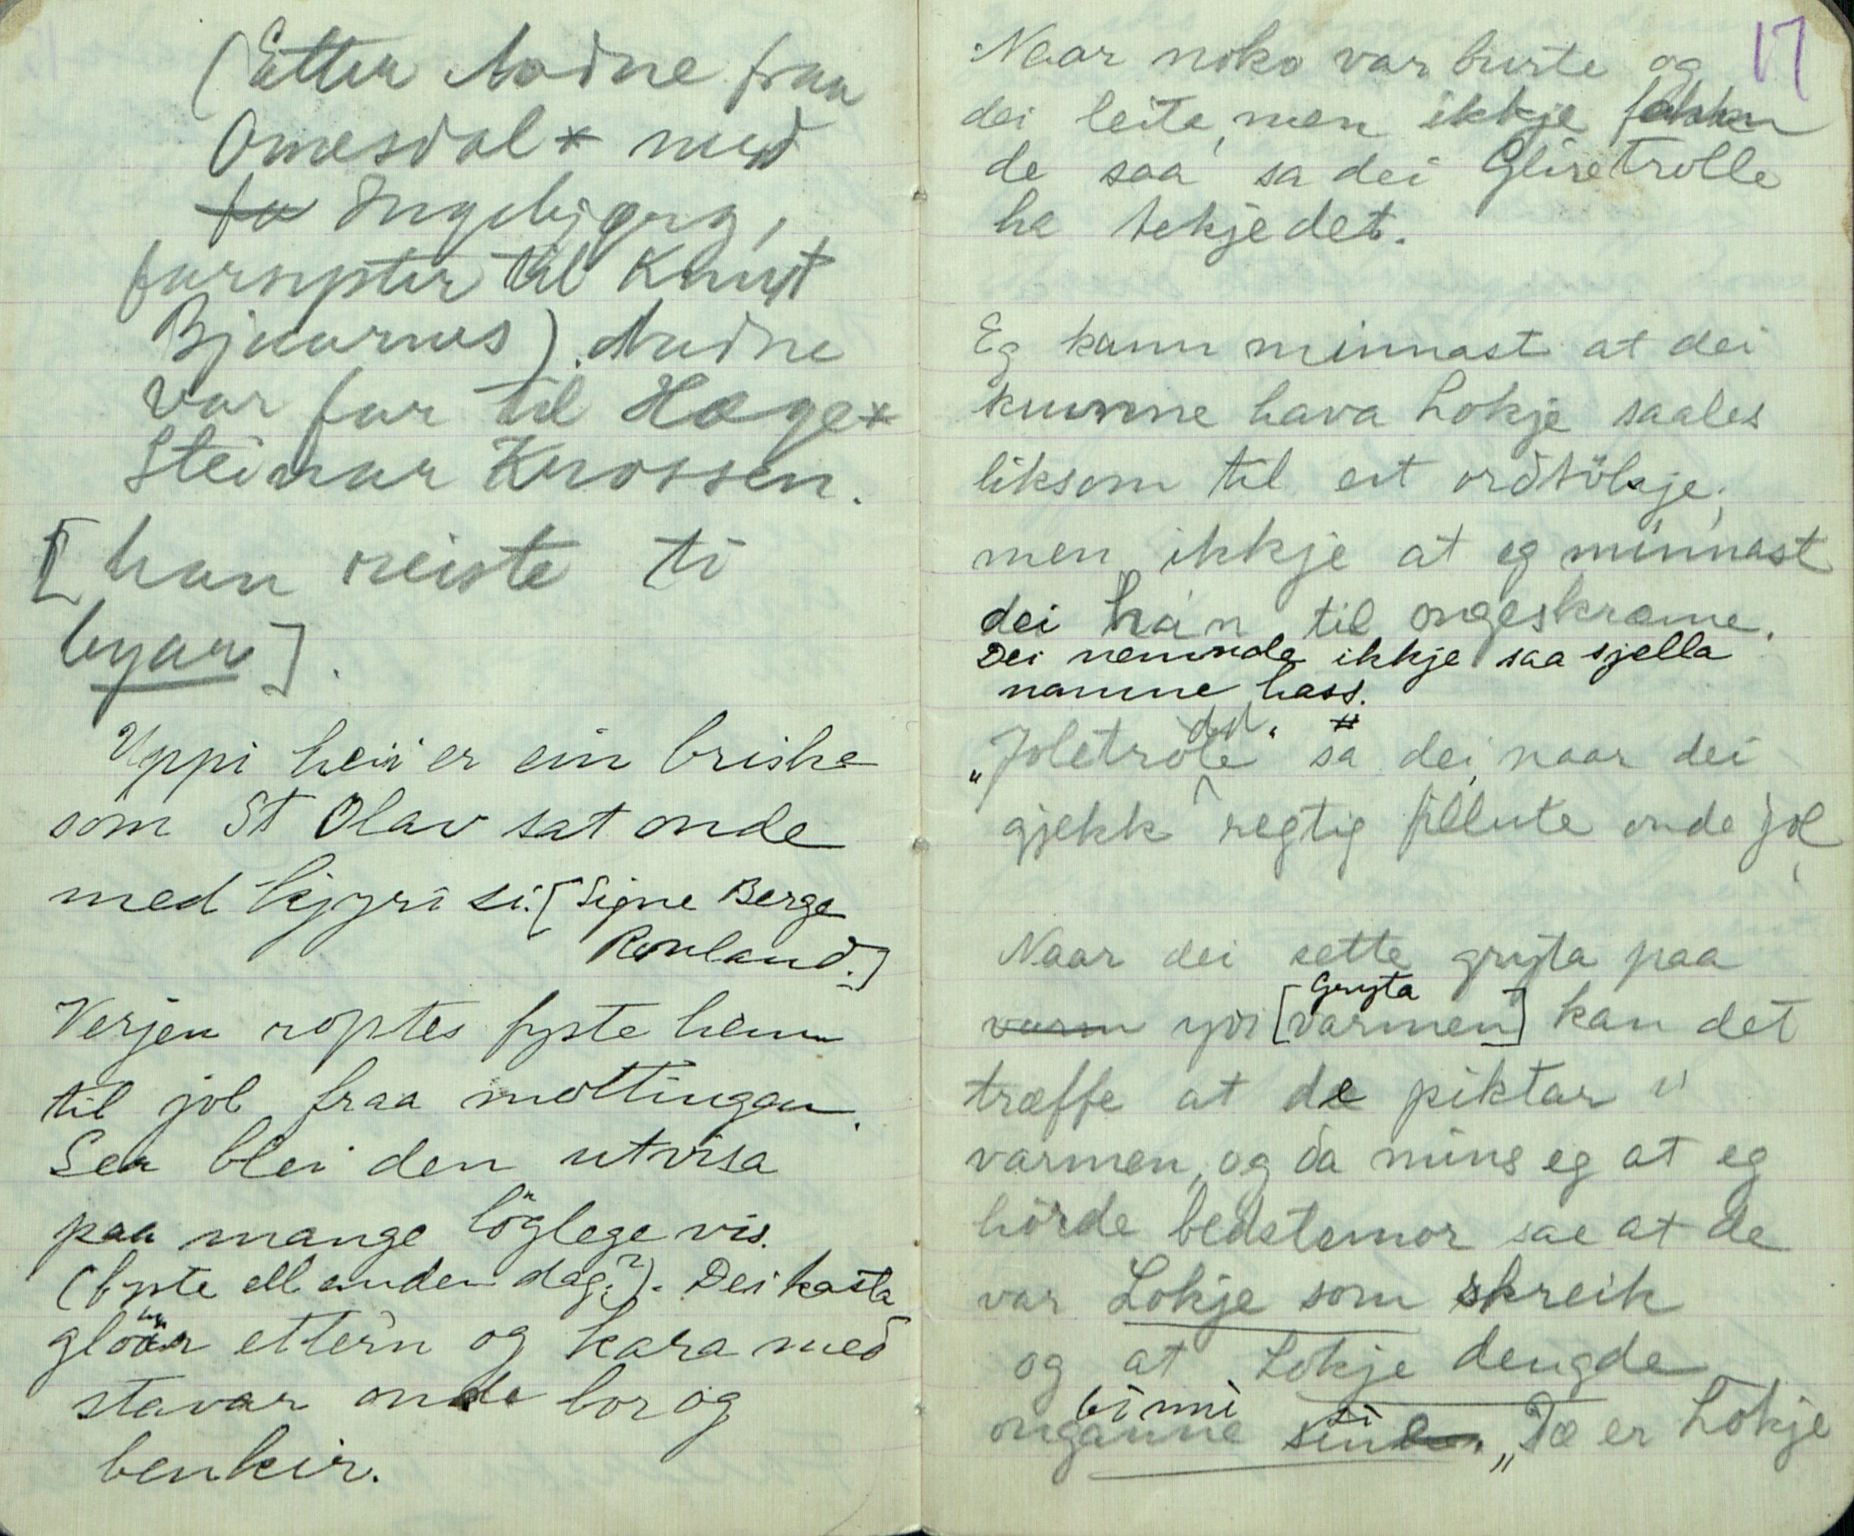 (Etter Aadne fraa
Omesdal* med
fa Ingebjørg,
farsyster til Knut
Bjaarnes). Aadne
var far til Hæge*
Steinar Knossen.
[han reiste ti
byar].
Uppi heii er ein briske
som St Olav sat onde
med kjyri si. [Signe Berge
Rauland.]
Verjen roptes fyste heim
til jol fraa mottinggan.
Sea blei den utvisa
paa mange löglege vis.
(fyste ell anden dag?). Dei kasta
gloiar ettern og kara med
stavar onde bor og
benkir.
17
Naar noko var burte og
dei leita, men ikkje fekk
de saa sa dei Gliretrolle
ha tekje det.
Eg kann minnast at dei
kunne hava Lokje saales
liksom til eit ordtökje;
men ikkje at eg minnast
dei há'n til ongeskræme.
Dei nemnde ikkje saa sjella
namne hass.
"Joletröll dd. sa dei naar dei
gjekk regtig fillute onde jol
Naar dei sette gryta paa
varm yvi [varmen] Gryta kan det
træffe at de piktar ti
varmen, og da mins eg at eg
hörde bedstemor sae at de
var Lokje som skreik
og at Lokje dengde
onganne binni sine si. "Dæ er Lokje